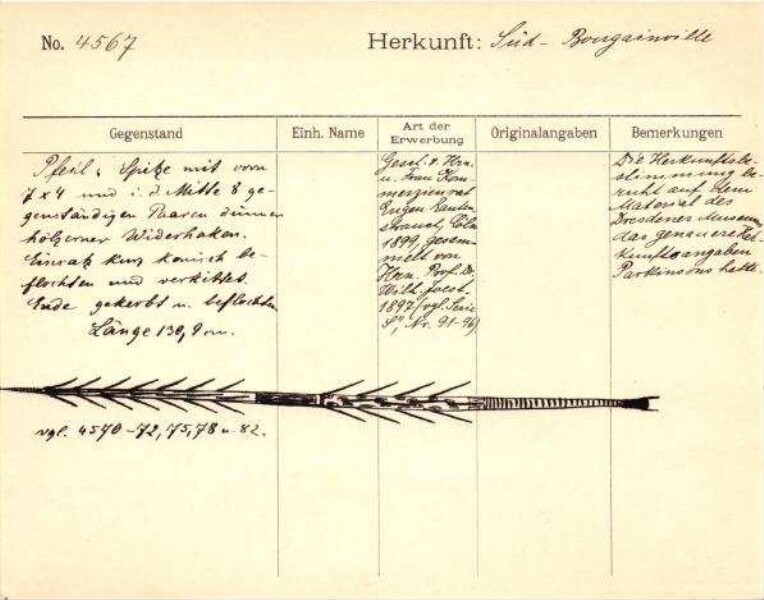 No. 4567
Herkunft: Süd-Bougainville
Gegenstand
Einh. Name
Art der
Erwerbung
Originalangaben
Bemerkungen
Pfeil, Spitze mit vorn
7 x 4 und i. d. Mitte 8 ge-
genständigen Paaren dünner
hölzerner Widerhaken.
Einsatz kurz konisch be-
flochten und verkittet.
Ende gekerbt u. beflochten
Länge 130,9 cm.
Gesch. v. Hrn.
u. Frau Kom-
merzienrat
Eugen Rauten-
strauch, Cöln
1899, gesam-
melt von
Hrn. Prof. Dr.
Wilh. Joest
1897 (vgl. Serie
Nr. 91-96)
Die Herkunftsbe-
stimmung be-
ruht auf dem
Material des
Dresdener Museums,
das genauere Her-
kunftsangaben
Parkinsons hatte.
vgl. 4570-72, 75, 78 u. 82.